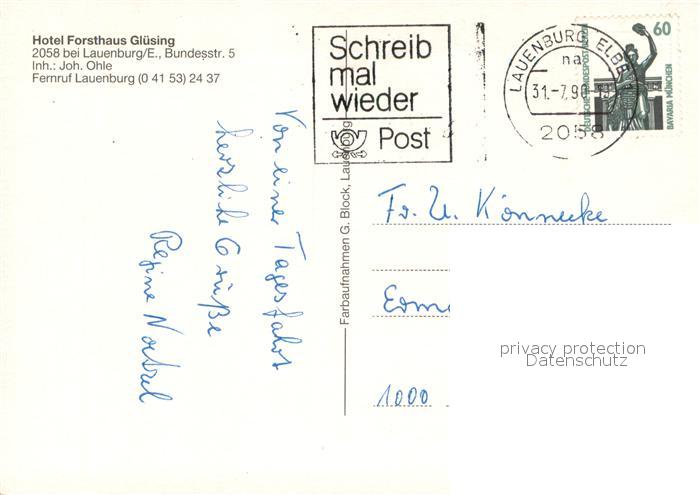 Hotel Forsthaus Glüsing
2058 bei Lauenburg/E., Bundesstr. 5
Inh.: Joh. Ohle
Fernruf Lauenburg (0 41 53) 24 37
Schreib
mal
wieder
Post
LAUENBURG, ELBE
na
31.-7.90
2058
60
DEUTSCHE BUNDESPOST BERLIN
BAVARIA MÜNCHEN
Von einer Tagesfahrt
herzliche Grüße
Regine
Farbaufnahmen G. Block, Lauenburg
Fr. U. Könnecke
1000
privacy protection
Datenschutz